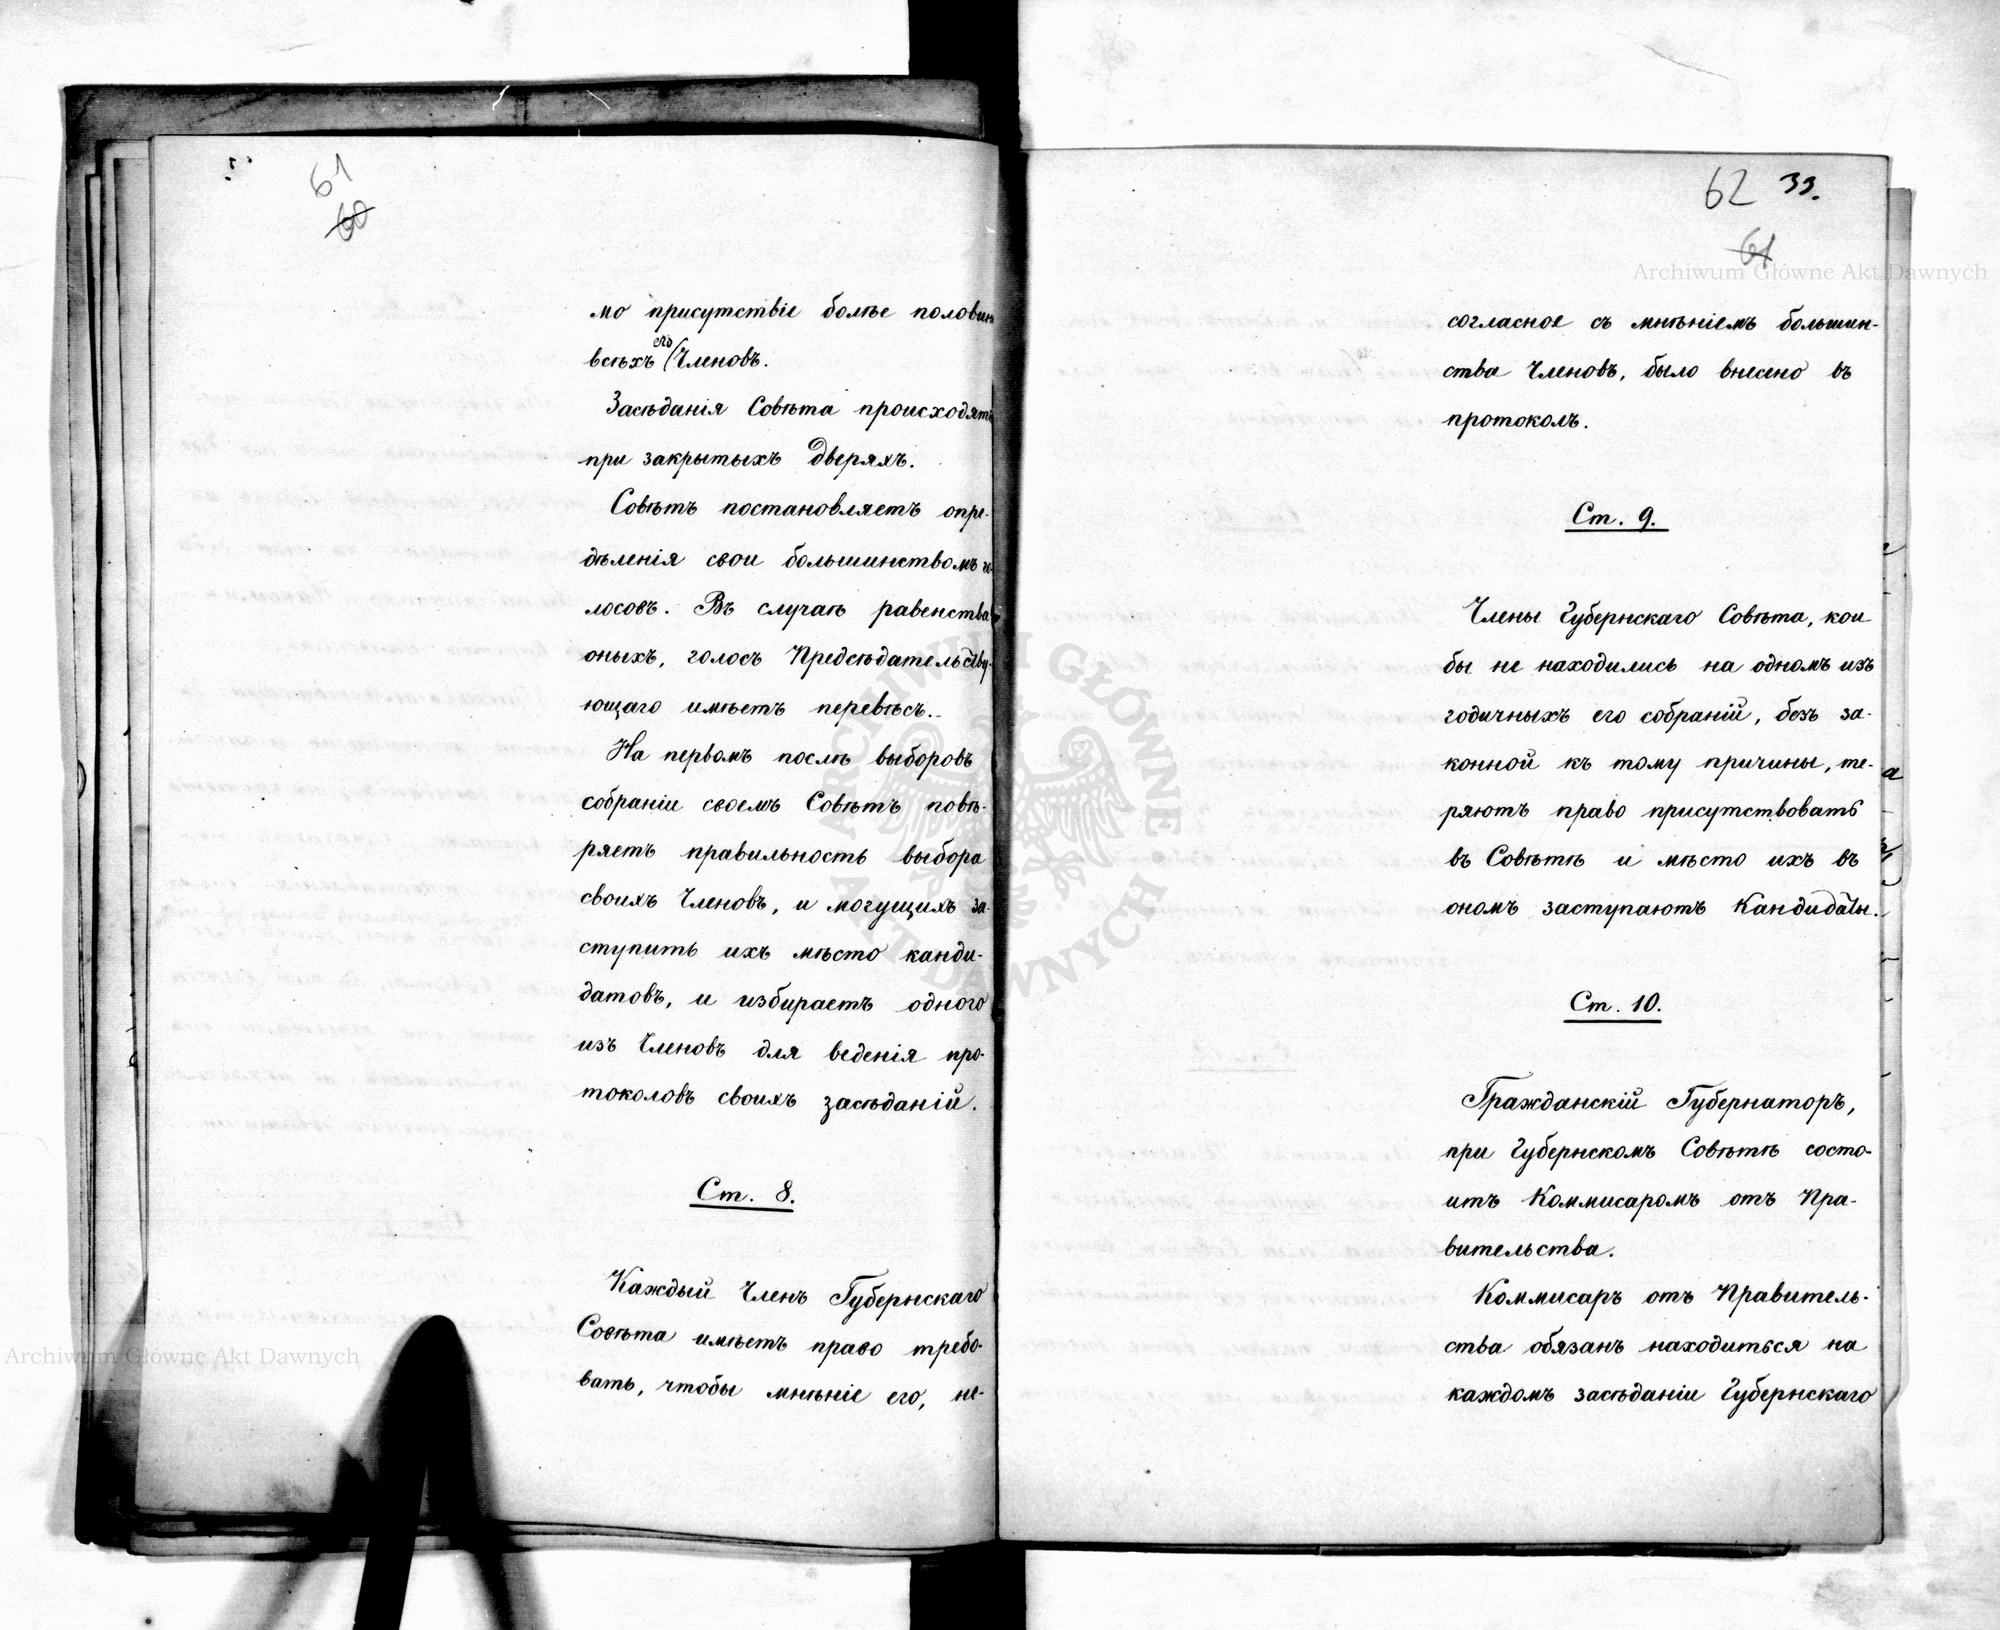 61
60
мо присутствіе болѣе половины
всѣхъ его Членовъ.
Засѣданія Совѣта происходятъ
при закрытыхъ дверяхъ.
Совѣтъ постановляетъ опре-
дѣленія свои большинствомъ го-
лосовъ. Въ случаѣ равенства
оныхъ, голосъ Предсѣдательству-
ющаго имѣетъ перевѣсъ.
На первомъ послѣ выборовъ
собраніи своемъ Совѣтъ повѣ-
ряетъ правильность выбора
своихъ Членовъ, и могущихъ за-
ступить ихъ мѣсто канди-
датовъ, и избираетъ одного
изъ Членовъ для веденія про-
токоловъ своихъ засѣданій.
Ст. 8.
Каждый Членъ Губернскаго
Совѣта имѣетъ право требо-
вать, чтобы мнѣніе его, не-
62 39.
61
согласное съ мнѣніемъ большин-
ства Членовъ, было внесено въ
протоколъ.
Ст. 9.
Члены Губернскаго Совѣта, кои
бы не находились на одномъ изъ
годичныхъ его собраній, безъ за-
конной къ тому причины, те-
ряютъ право присутствовать
въ Совѣтѣ и мѣсто ихъ въ
ономъ заступаютъ Кандидаты.
Ст. 10.
Гражданскій Губернаторъ,
при Губернскомъ Совѣтѣ состо-
итъ Коммисаромъ отъ Пра-
вительства.
Коммисаръ отъ Правитель-
ства обязанъ находиться на
каждомъ засѣданіи Губернскаго
Archiwum Główne Akt Dawnych
Archiwum Główne Akt Dawnych
ARCHIWUM GŁÓWNE AKT DAWNYCH